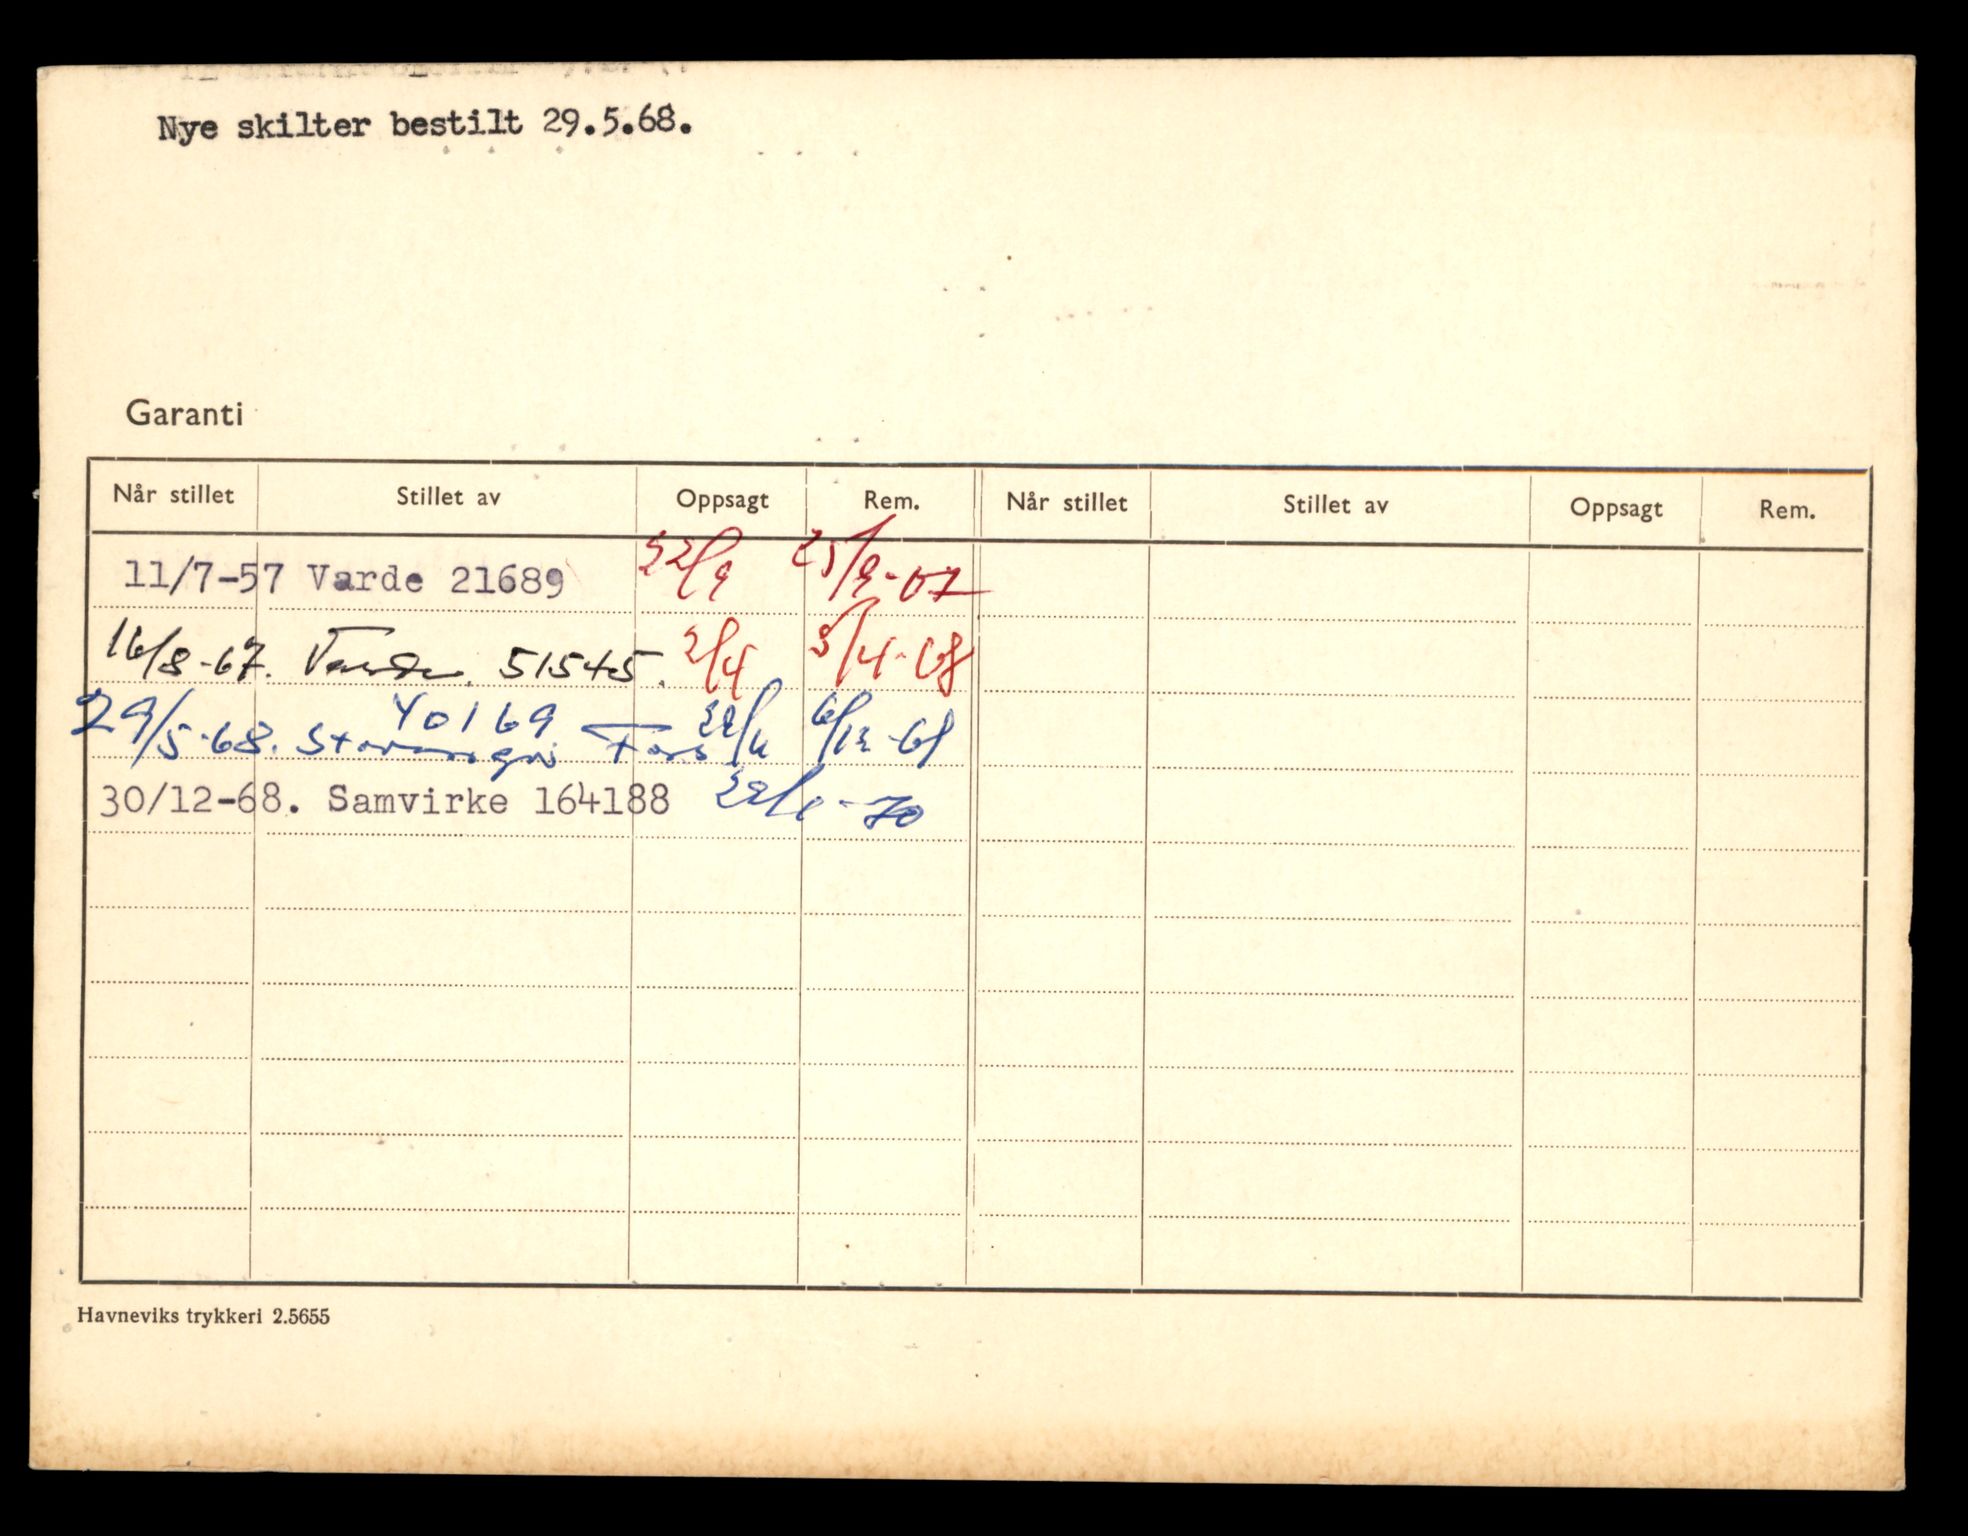 Nye skilter bestilt 29.5.68.
Garanti
Når stillet Stillet av Oppsagt Rem. Når stillet Stillet av Oppsagt Rem.
11/7-57 Varde 21689 22/9 25/9-67
16/8-67. Varde. 51545. 2/4 3/4-68
40169
29/5-68. 6/12-68
30/12-68. Samvirke 164188 -70
Havneviks trykkeri 2.5655